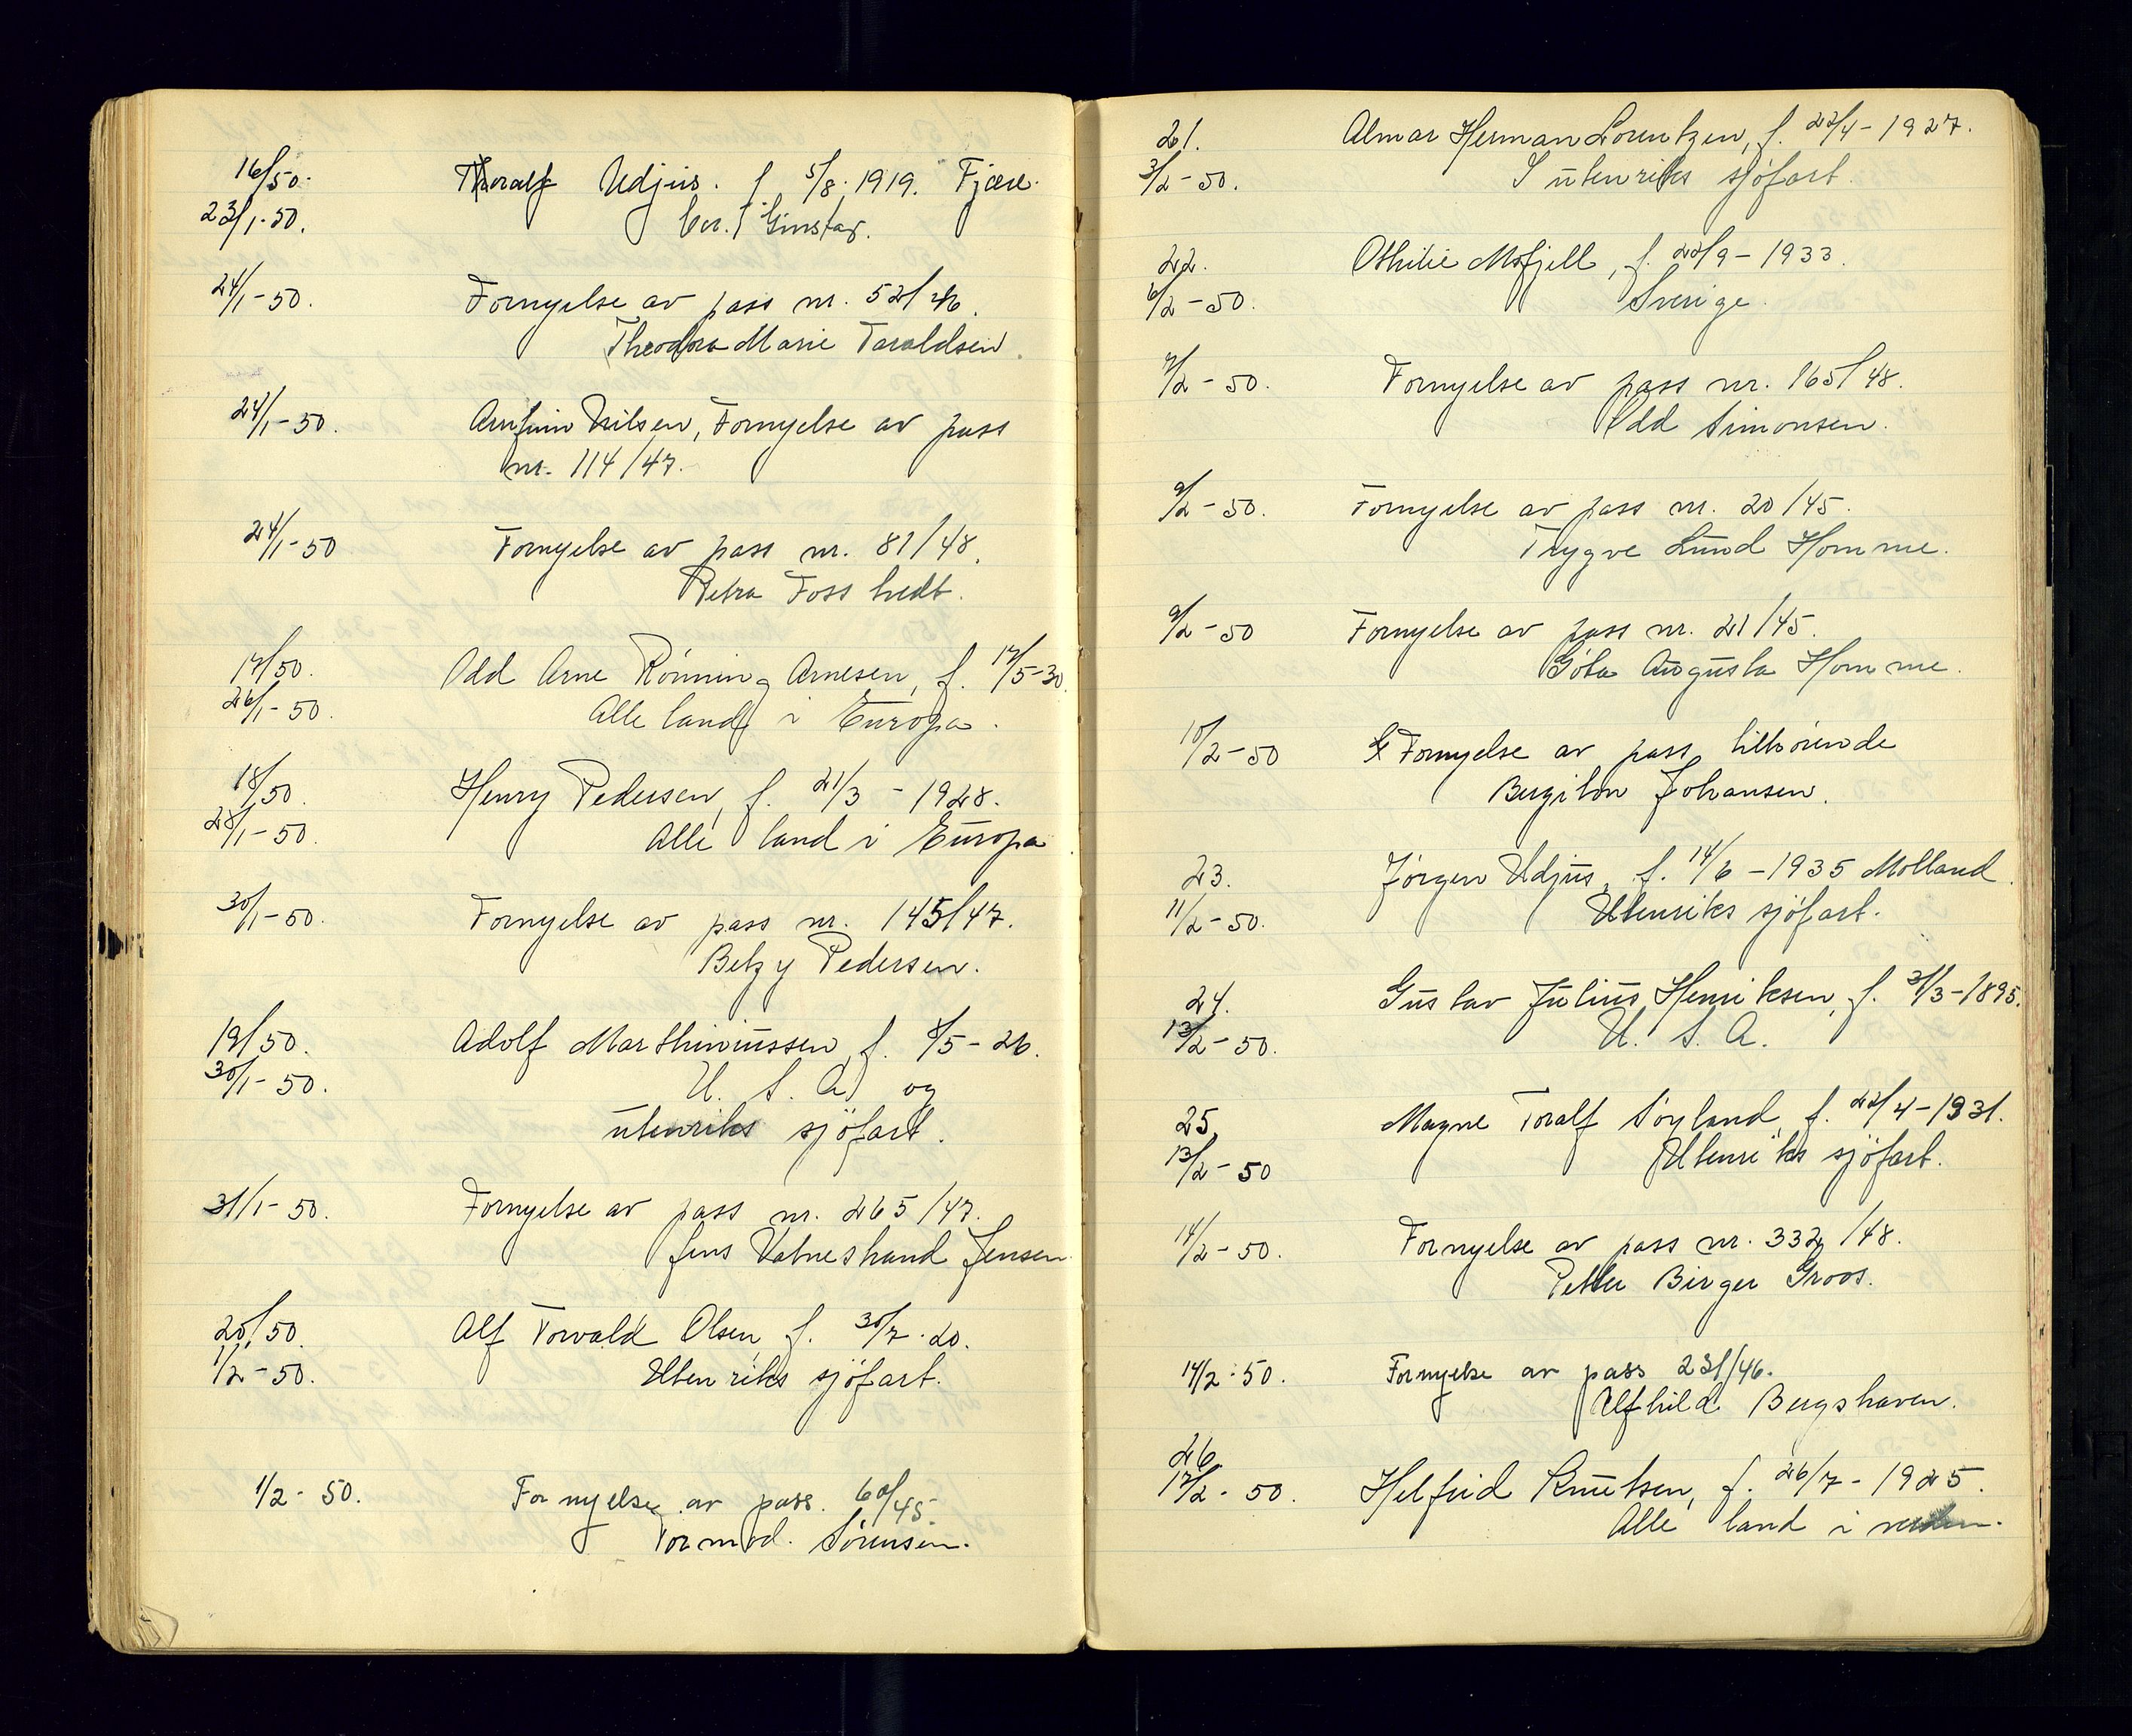 16/50. Thoralf Udjus. f 5/8. 1919. Fjære.
23/1-50.
24/1-50. Fornyelse av pass nr. 52/46.
Theodora Marie Taraldsen.
24/1-50. Arnfinn Nilsen, Fornyelse av pass
nr. 114/47.
24/1-50 Fornyelse av pass nr. 81/48.
Petra Foss tvedt.
17/50. Odd Arne Rönning Arnesen, f. 17/5-30.
26/1-50. Alle land i Europa.
18/50. Henry Pedersen, f. 21/3 - 1928.
28/1-50. Alle land i Europa
30/1-50. Fornyelse av pass nr. 145/47.
Betzy Pedersen.
19/50. Adolf Marthiniussen, f. 8/5-26.
30/1-50. U. S. A. og
utenriks sjöfart.
31/1-50. Fornyelse av pass nr. 265/47.
Jens Vatnestrand Jensen
20/50. Alf Torvald Olsen, f. 30/7.20.
1/2-50. Utenriks sjöfart.
1/2-50. Fornyelse av pass. 60/45.
Tormod. Sörensen.
21. Almar Herman Lorentzen, f. 22/4-1927.
3/2-50. I utenriks sjöfart.
22. Othilie Mofjell, f. 22/9-1933.
6/2-50. Sverige.
7/2-50. Fornyelse av pass nr. 165/48.
Odd Simonsen.
9/2-50. Fornyelse av pass nr. 20/45.
Trygve Lund Homme.
9/2-50 Fornyelse av pass nr. 21/45.
Göta Augusta Homme.
10/2-50 Fornyelse av pass tilhörende
Bergiton Johansen.
23. Jörgen Udjus, f. 14/6-1935 Molland.
11/2-50. Utenriks sjöfart.
24. Gustav Julius Henriksen, f. 31/3-1895.
13/2-50. U. S. A.
25. Magne Toralf Söyland, f. 22/4-1931.
13/2-50 Utenriks sjöfart.
14/2-50. Fornyelse av pass nr. 332/48.
Petter Birger Groos.
14/2-50. Fornyelse av pass 231/46.
Alfhild Bergshaven.
26. Helfrid Knutsen, f. 26/7-1925.
17/2-50. Alle land i verden.